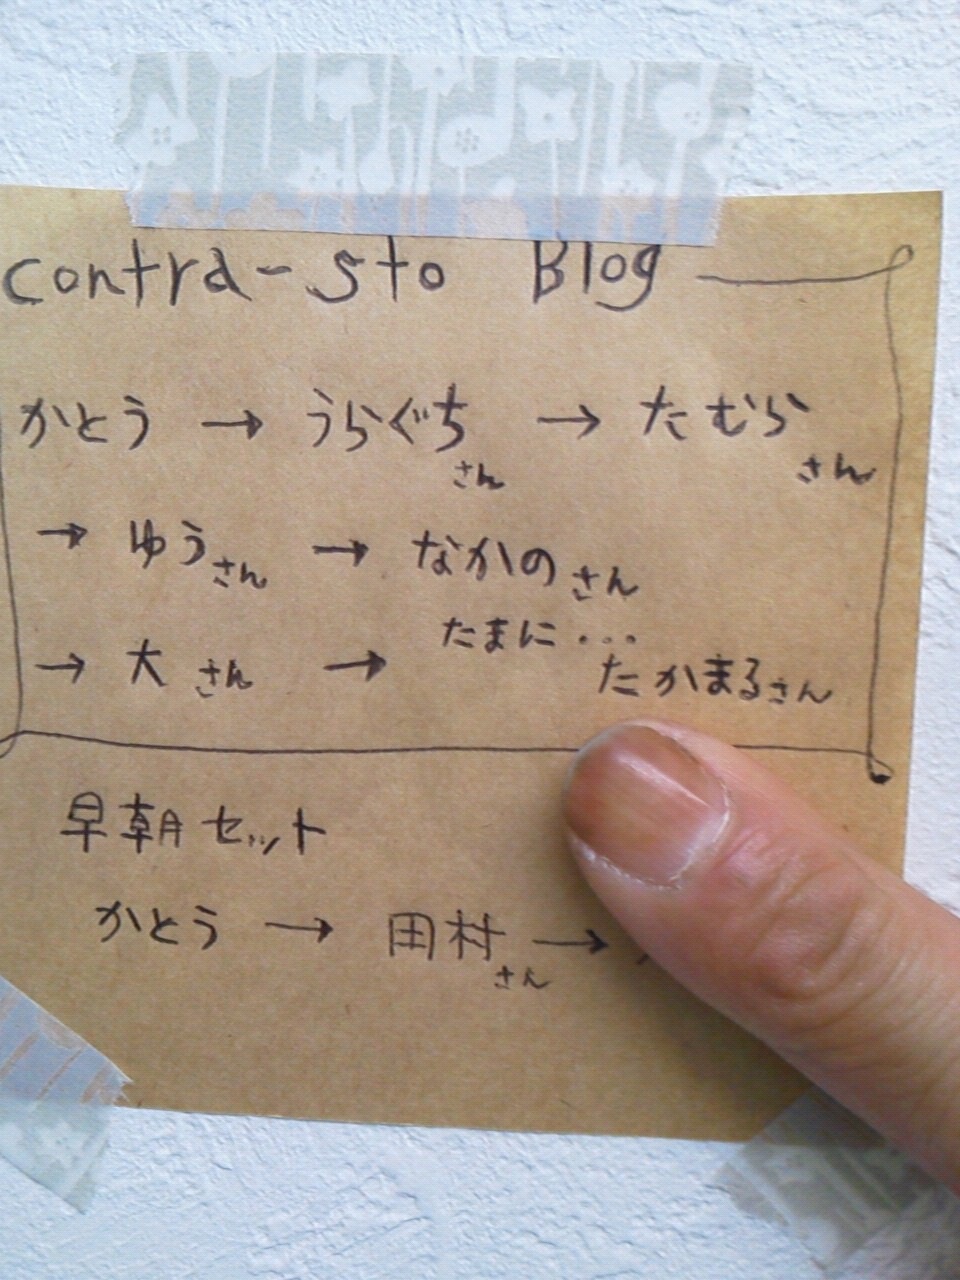 contra-sto Blog
かとう → うらぐちさん → たむらさん
→ ゆうさん → なかのさん
→ 大さん → たまに・・・たかまるさん
早朝セット
かとう → 田村さん →